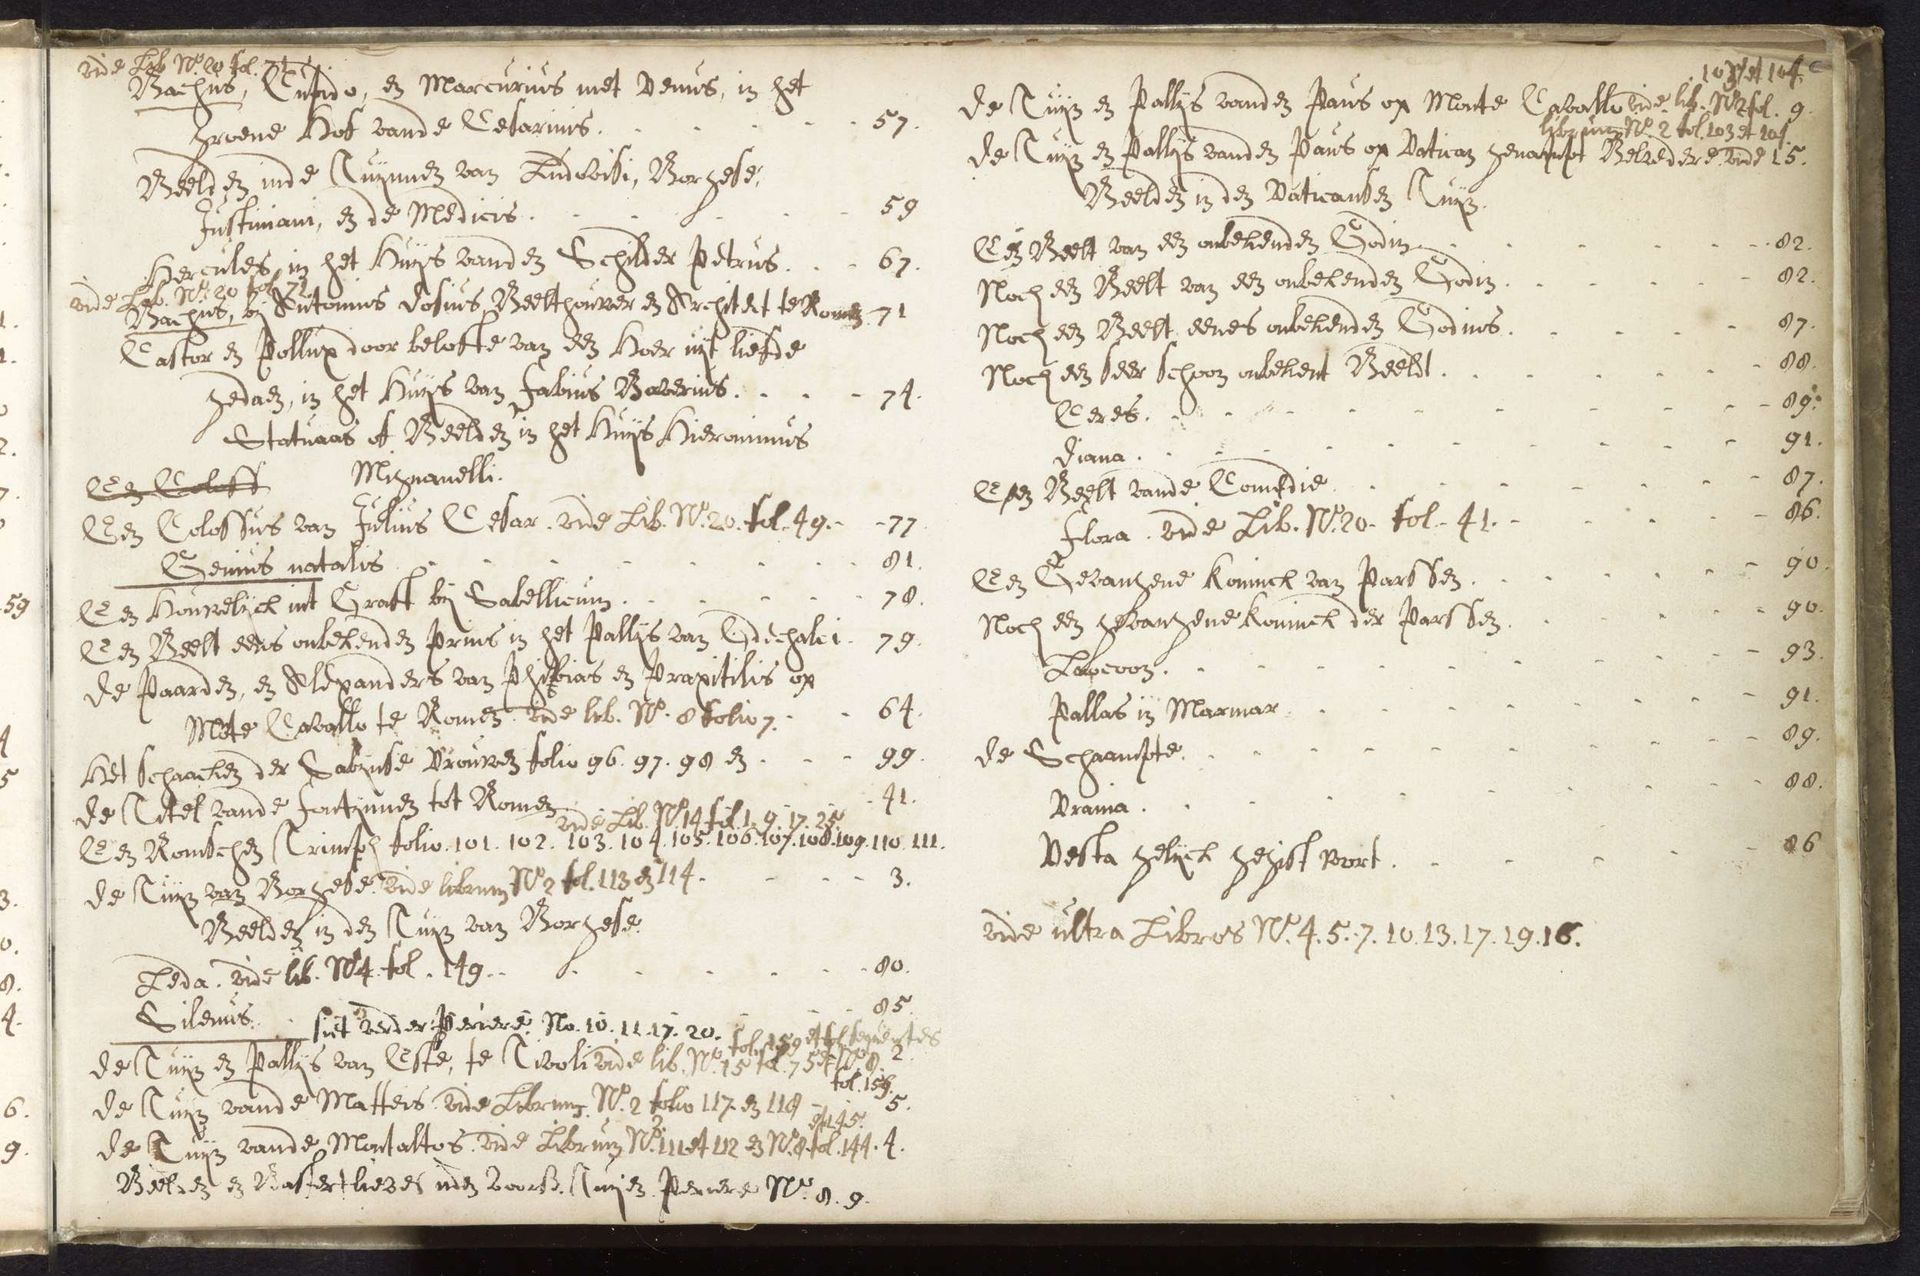 vide Lib N.º 20 fol. 71
Bachus, Cupido, en Marcurius met Venus, in het
groene Hof vande Cesarinis. 57.
Beelden inde Tuijnnen van Ludovisi, Borgese,
Justiniani, en de Medicis. 59
Hercules, in het Huijs vanden Schilder Petrus. 67.
vide Lib. N.º 20 fol. 71
Bachus, bij Antonius dosius, Beelthouwer en Architect te Romen. 71
Castor en Pollux door belofte van een Hoer uijt liefde
gedaen, in het Huijs van Fabius Boverius. 74.
Statuaas of Beelden in het Huijs Hieronimus
Mignanelli.
Een Coloss
Een Colossus van Julius Cesar. vide Lib. N.º 20. fol. 49. 77
Genius natalis 81.
Een Houwelijck int Graft bij Sabellicum. 78.
Een Beelt eens onbekenden Prins in het Pallijs van Odechalci. 79.
De Paarden, en Alexanders van Phidias en Praxitilis op
Mote Cavallo te Romen. vide lib. N.º 8 folio 7. 64.
Het schaacken der Sabynse Vrouwen folio 96. 97. 98 en 99.
De Titel vande fontijnnen tot Romen 41.
vide Lib. N.º 14 fol. 1. 9. 17. 25
Een Romschen Trimph folio. 101. 102. 103. 104. 105. 106. 107. 108. 109. 110. 111.
De Tuijn van Borgese. vide librum N.º 2 fol. 113 en 114. 3.
Beelden in den Tuijn van Borgese.
Leda. vide lib. N.º 4. fol. 149. 80.
Silenus. 85.
siet verder Periere. No. 10. 11. 17. 20.
fol. 159 et fol sequentes
De Tuijn en Pallijs van Este, te Tivoli vide lib. N.º 15 fol. 75 et N.º 8. 2.
fol. 159.
De Tuijn vande Matteis. vide Librum. N.º 2 folio 117. en 118 5.
et 145.
De Tuijn vande Montaltos. vide Librum N.º 2 111 et 112 en N.º 8. fol. 144. 4.
Beelden en Basserelieves inden voors. Tuijen Periere N.º 8. 9.
103 et 104.
De Tuijn en Pallijs vanden Paus op Monte Cavallo vide lib. N.º 2 fol. 9.
librum N.º 2 fol. 103 et 104
De Tuijn en Pallijs vanden Paus op Vatican genaampt Belvedere. vide 15.
Beelden in den Vaticansen Tuijn.
Een Beelt van een onbekenden Godin. 82.
Noch een Beelt van een onbekenden Godin. 82.
Noch een Beelt eenes onbekenden Godins. 87.
Noch een seer schoon onbekent Beeldt. 88.
Ceres. 89.
Diana. 91.
Een Beelt vande Comedie. 87.
Flora. vide Lib. N.º 20. fol. 41. 86.
Een Gevangene Koninck van Parssen. 90.
Noch een gevangene Koninck der Parssen. 90.
Laocoon. 93.
Pallas in Marmar. 91.
De Schaampte. 89.
Urania. 88.
Vesta gelijck gegist wort. 86
vide ultra Libros N.º 4. 5. 7. 10. 13. 17. 19. 16.
59